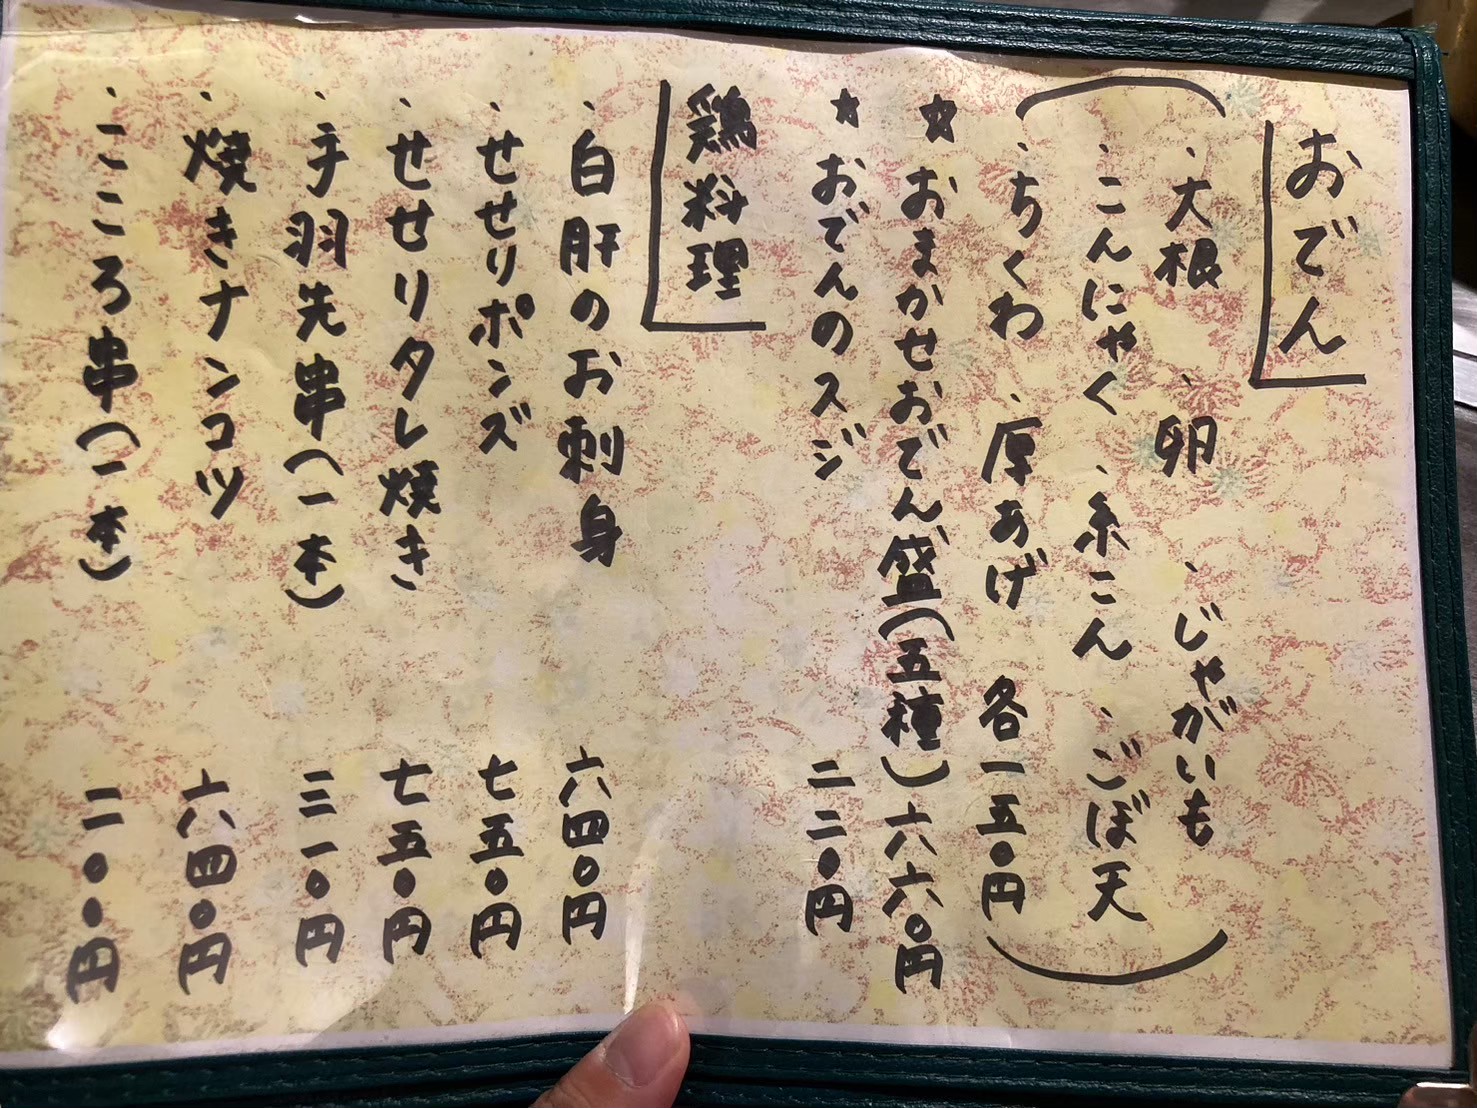 おでん
・大根 ・卵 ・じゃがいも
・こんにゃく ・糸こん ・ごぼ天
・ちくわ ・厚あげ 各一五〇円
☆おまかせおでん盛(五種) 六六〇円
☆おでんのスジ 二二〇円
鶏料理
・白肝のお刺身 六四〇円
・せせりポンズ 七五〇円
・せせりタレ焼き 七五〇円
・手羽先串(一本) 三一〇円
・焼きナンコツ 六四〇円
・こころ串(一本) 二〇〇円